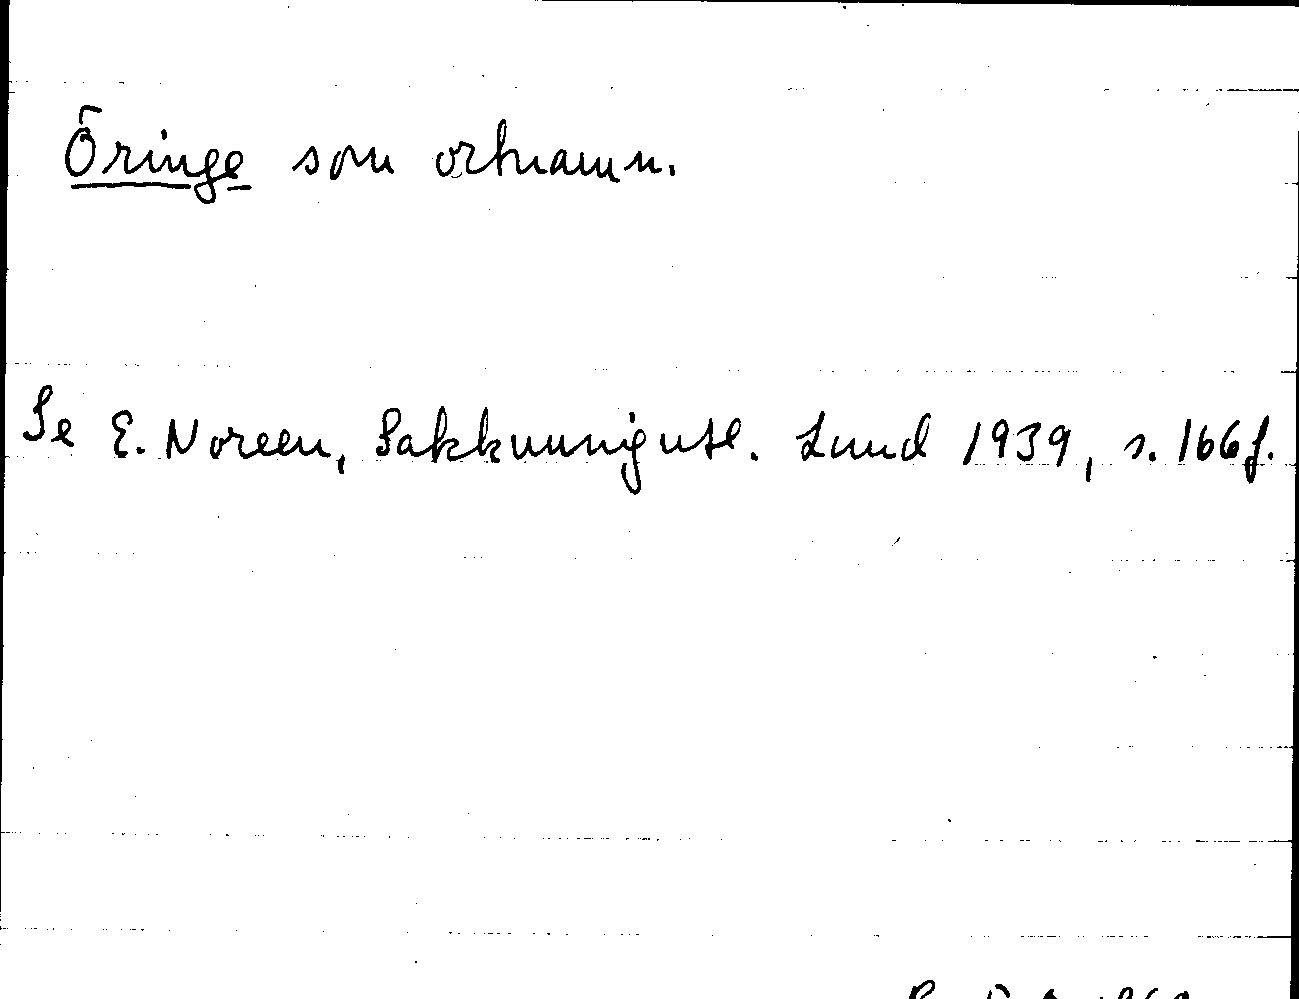 Öringe som ortnamn.
Se E. Noreen, Sakkunnigutl. Lund 1939, s. 166 f.